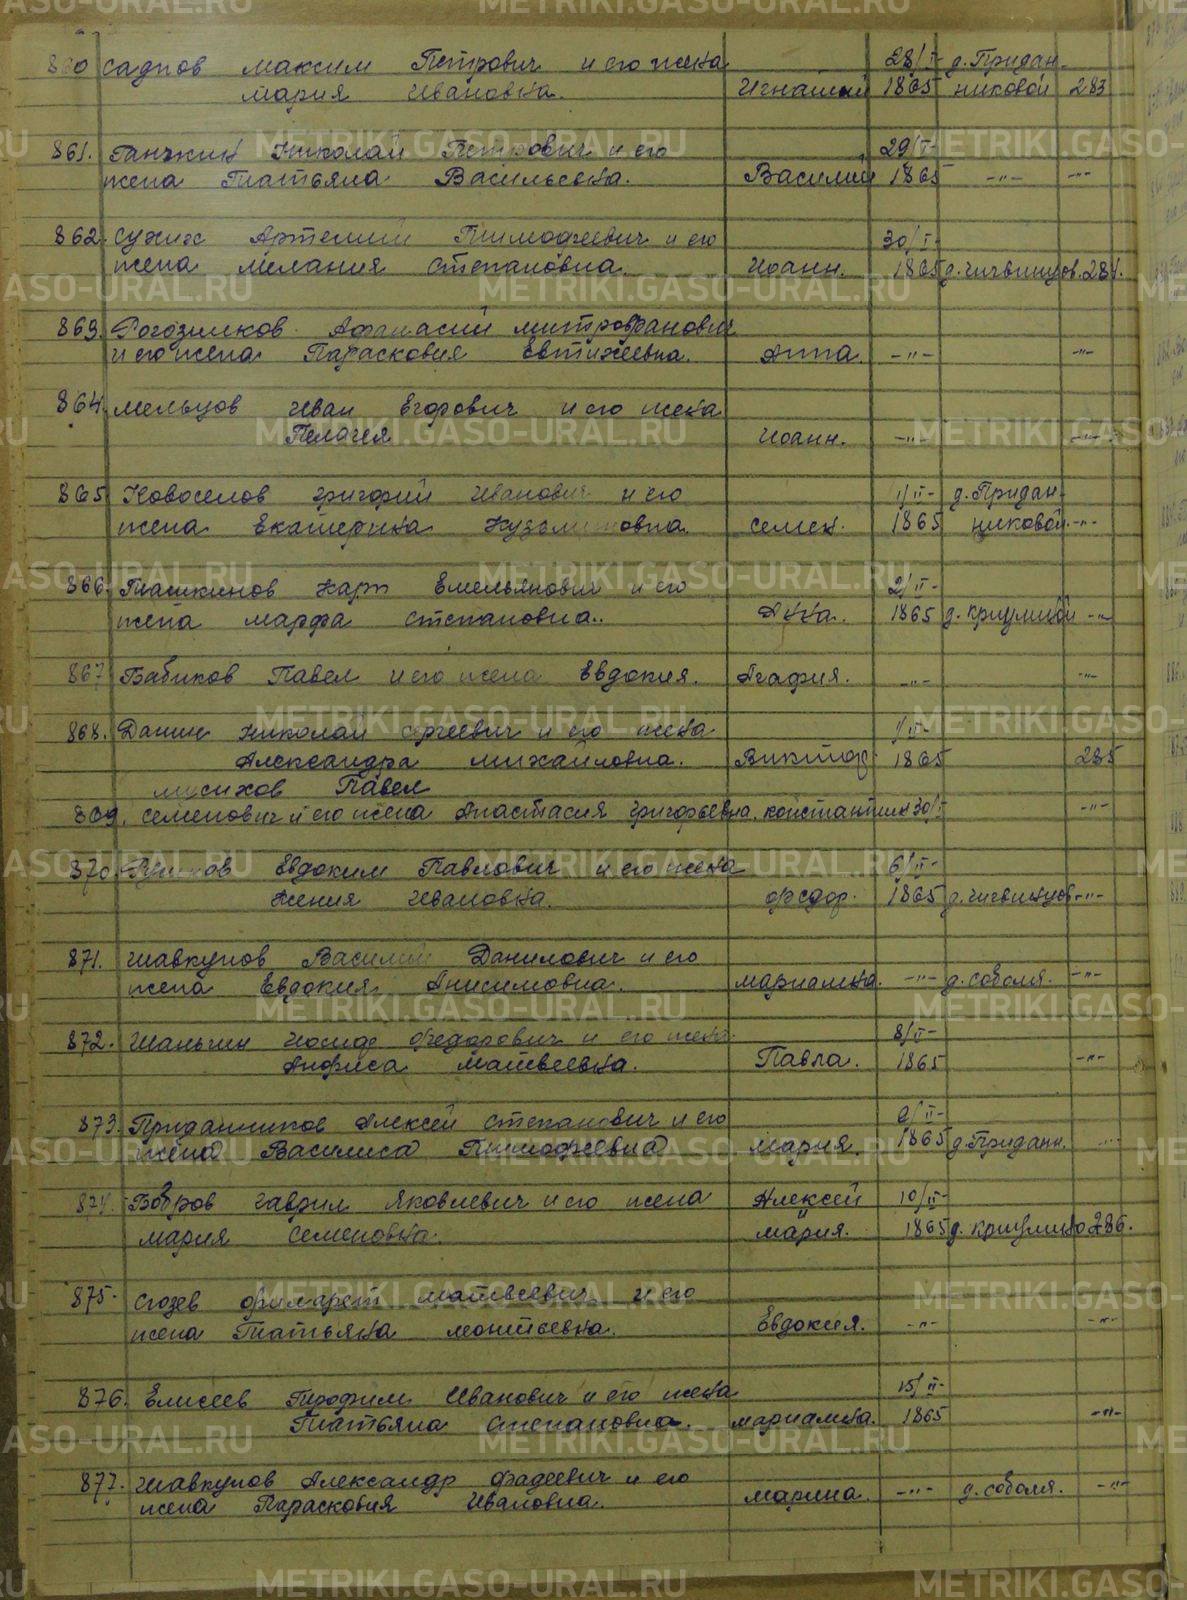 860 Садпов Максим Петрович и его жена 28/I- д. Придан-
Мария Ивановна. Игнатий 1865 никовой 283
861. Ганчкин Николай Петрович и его 29/I-
жена Татьяна Васильевна. Василий 1865 -"- -"-
862. Сухих Артемий Тимофеевич и его 30/I-
жена Мелания Степановна. Иоанн. 1865 д. Чигвинцов. 284.
863. Рогозников Афанасий Митрофанович
и его жена Парасковия Евтихеевна. Анна. -"- -"-
864. Мельцов Иван Егорович и его жена
Пелагея Иоанн. -"- -"-
865 Новоселов Григорий Иванович и его 1/II- д. Придан-
жена Екатерина Кузьминовна. Семен. 1865 никовой. -"-
866. Ташкинов Карп Емельянович и его 2/II-
жена Марфа Степановна. Анна. 1865 д. Криулиной -"-
867 Бабиков Павел и его жена Евдокия. Агафия. -"- -"-
868. Данин Николай Сергеевич и его жена 1/II-
Александра Михайловна. Виктор 1865 285
Павел
869. Семенович и его жена Анастасия Григорьевна. Константин 30/I -"-
870. Евдоким Павлович и его жена 6/II-
Ксения Ивановна. Федор. 1865 д. Чигвинцов -"-
871. Шавкунов Василий Данилович и его
жена Евдокия Анисимовна. Мариамна. -"- д. Соболя. -"-
872. Шаньгин Иосиф Федорович и его жена 8/II-
Анфиса Матвеевна. Павла. 1865 -"-
873. Приданников Алексей Степанович и его 9/II-
жена Василиса Тимофеевна Мария. 1865 д. Приданн. -"-
874. Бобров Гаврил Яковлевич и его жена Алексей 10/II-
Мария Семеновна. и Мария. 1865 д. Криулино 286.
875. Филарет Матвеевич и его
жена Татьяна Евдокия. -"- -"-
876. Елисеев Трофим Иванович и его жена 15/II-
Татьяна Степановна. Мариамна. 1865 -"-
877. Шавкунов Александр Фадеевич и его
жена Парасковия Ивановна. Марина. -"- д. Соболя. -"-
METRIKI.GASO-URAL.RU